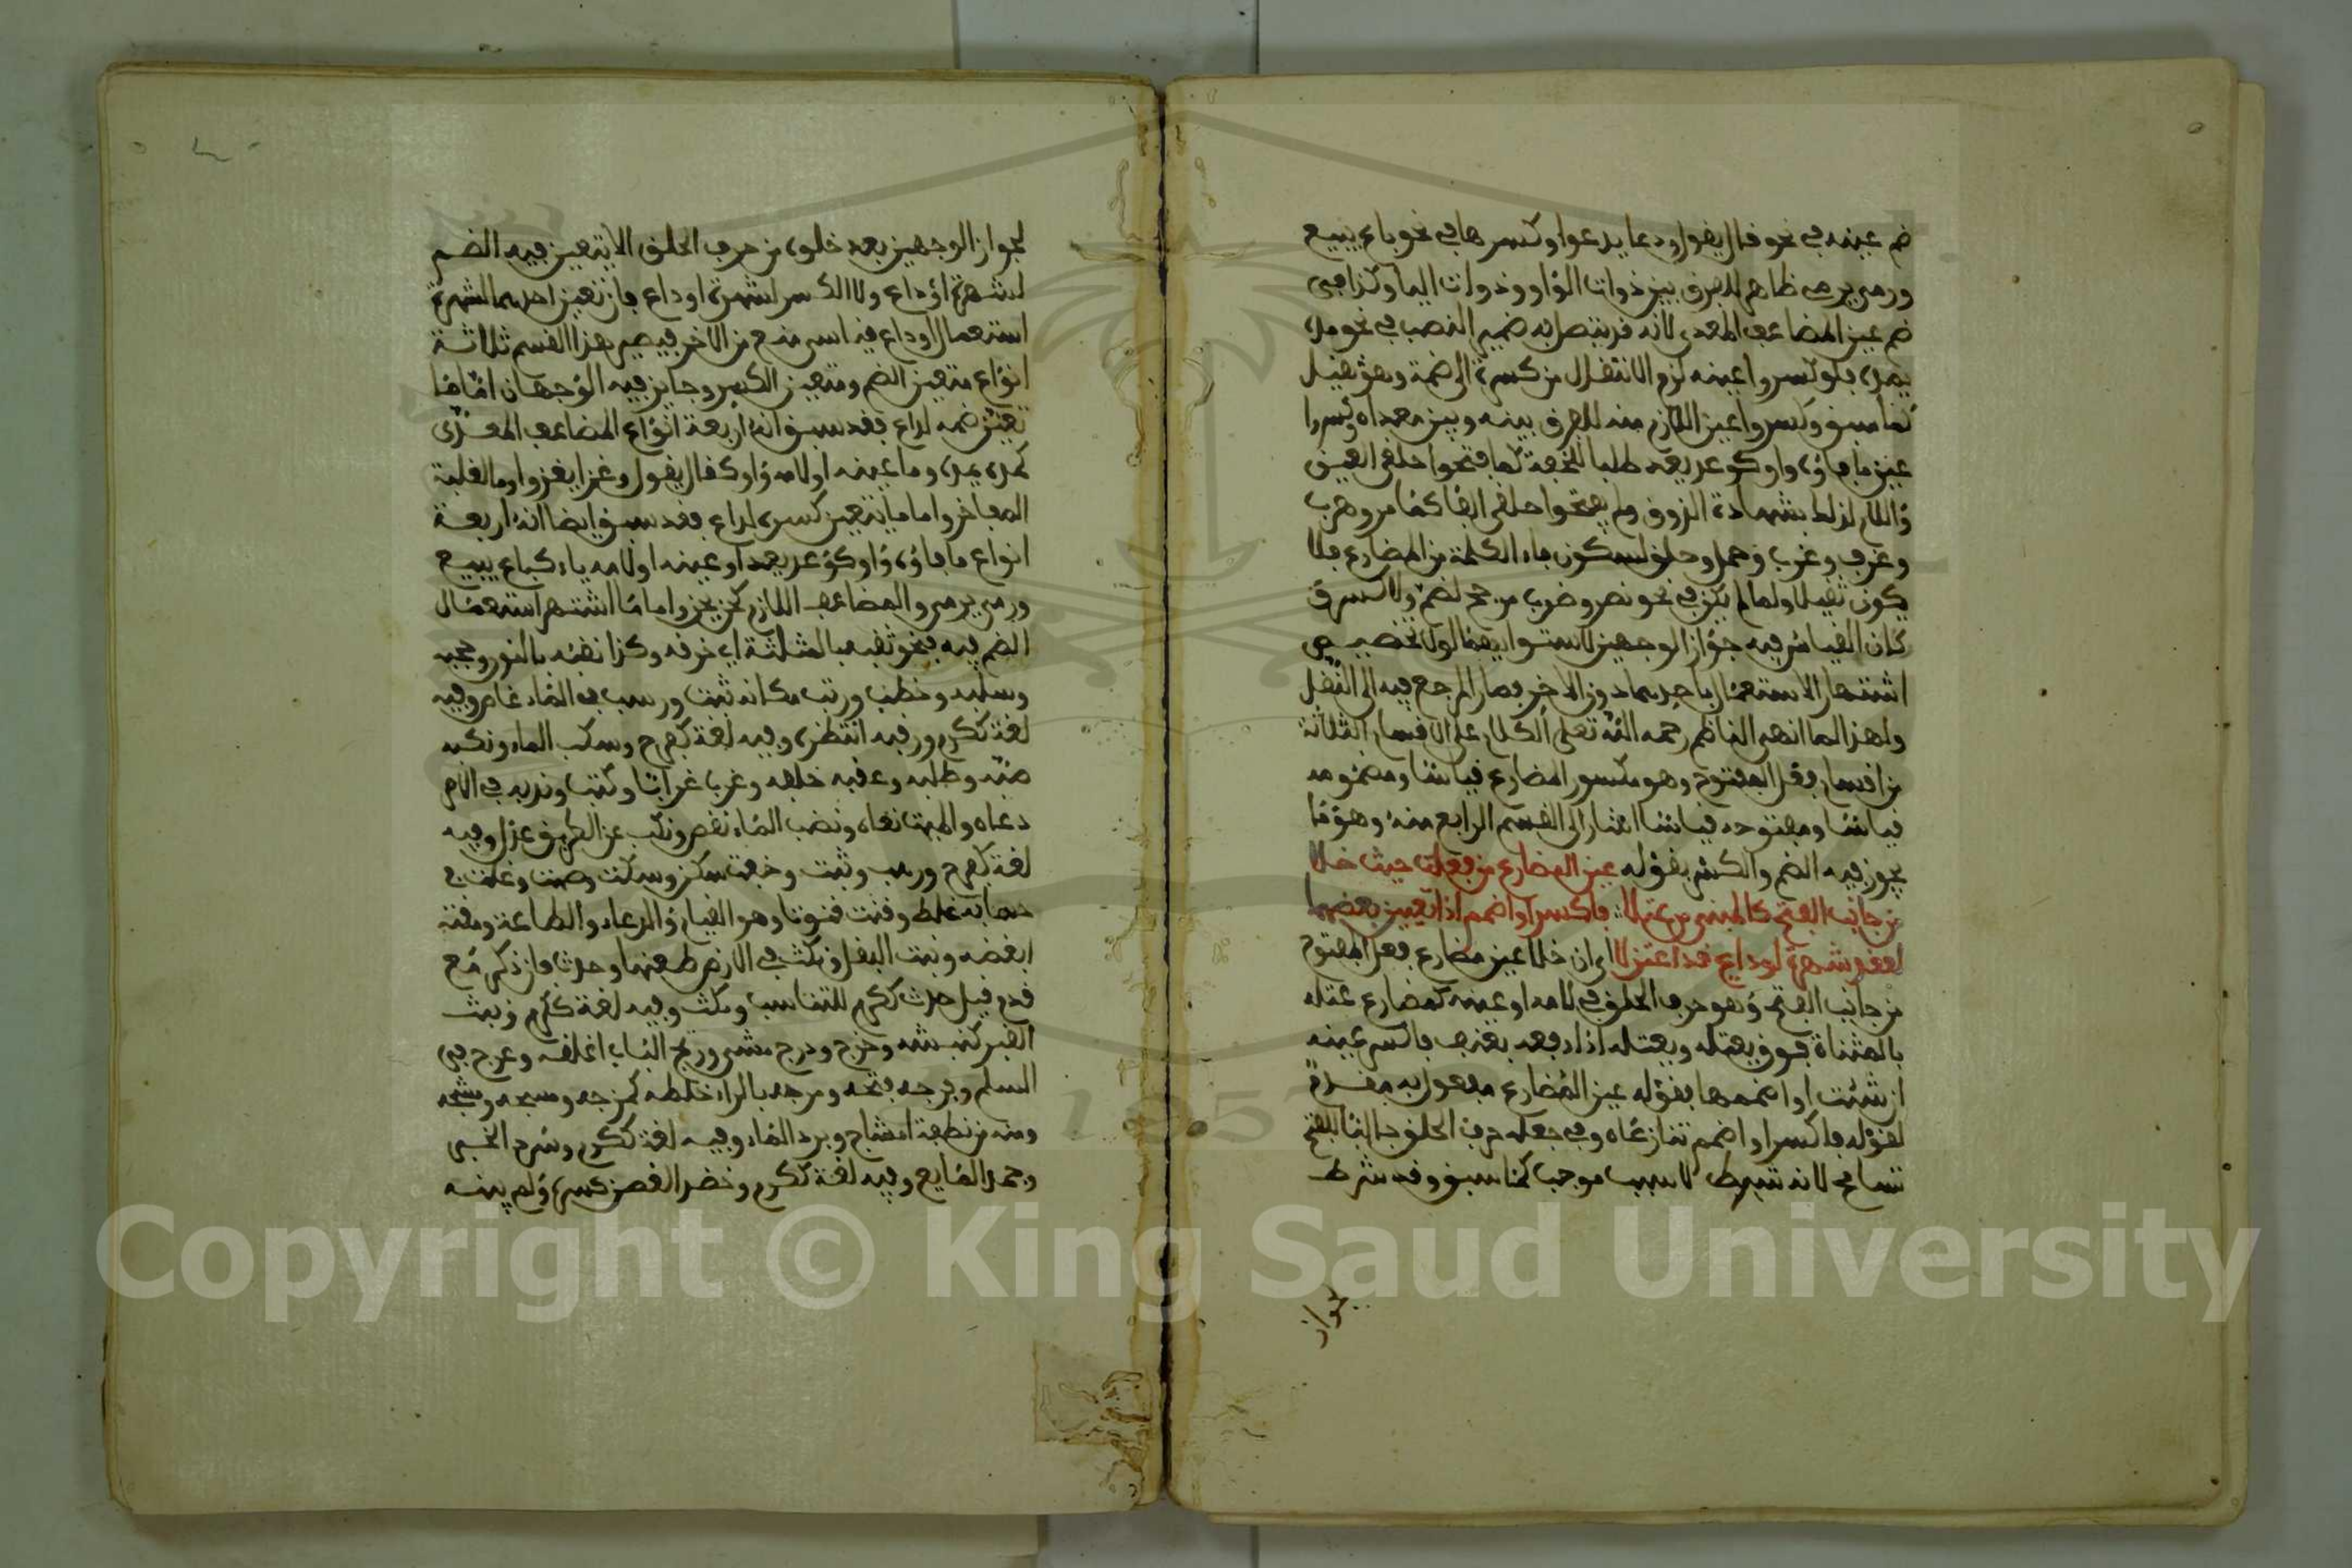 ضم عينه في نحو قال يقول ودعا يدعوا وكسرها في نحو باع يبيع
ورمى يرمي ظاهر للفرق بين ذوات الواو وذوات اليا وكذا في
ضم عين المضاعف المعدى لانه قد يتصل به ضمير النصب في نحو مده
يمده فلو كسروا عينه لزم الانتقال من كسرة الى ضمة وهو ثقيل
كما سبق وكسروا عين اللازم منه للفرق بينه وبين معداه وكسروا
عين ما فاؤه واو كوعد يعد طلبا للخفة كما فتحوا حلقي العين
واللام لذلك بشهادة الذوق ولم يفتحوا حلقي الفا كما مر وهرب
وعزف وعزب وحمل وحلق لسكون فاء الكلمة من المضارع فلا
يكون ثقيلا ولما لم يكن في نحو نصر وضرب مرجح لضم ولا كسر
كان القياس فيه جواز الوجهين لاستوايهما لولا تخصيص
اشتهار الاستعمال باحدهما دون الاخر فصار المرجع فيه الى النقل
ولهذا لما انهى الناظم رحمه الله تعلى الكلام على الاقسام الثلاثة
من اقسام فعل المفتوح وهو مكسور المضارع قياسا ومضمومه
قياسا ومفتوحه قياسا اشار الى القسم الرابع منه وهو ما
يجوز فيه الضم والكسر بقوله عين المضارع من فعلت حيث خلا
من جالب الفتح كالمبني من عتلا فاكسر او اضمم اذا تعيين بعضهما
لفقد شهرة او داع قد اعتزلا اي ان خلا عين مضارع فعل المفتوح
من جالب الفتح وهو حرف الحلق في لامه او عينه كمضارع عتله
بالمثناة فوق يعتله ويعتله اذا دفعه بعنف فاكسر عينه
ان شئت او اضممها بقوله عين المضارع مفعول به مقدم
لقوله فاكسر او اضمم تنازعاه وفي جعله حرف الحلق جالبا للفتح
تسامح لانه شرط لا سبب موجب كما سبق وقد شرط
جواز
لجواز الوجهين بعد خلوه من حرف الحلق الا يتعين فيه الضم
لشهرة او داع ولا الكسر لشهرة او داع فان تعين احدهما لشهرة
استعمال او داع قياسي منع من الاخر فيصير هذا القسم ثلاثة
انواع متعين الضم ومتعين الكسر وجايز فيه الوجهان اما ما
تعين ضمه لداع فقد سبق انه اربعة انواع المضاعف المعدى
كمده يمده وما عينه او لامه واو كقال يقول وغزا يغزوا وما لغلبة
المفاخر واما ما يتعين كسره لداع فقد سبق ايضا انه اربعة
انواع ما فاؤه واو كوعد يعد او عينه او لامه ياء كباع يبيع
ورمى يرمي والمضاعف اللازم كحن يحن واما ما اشتهر استعمال
الضم فيه فنحو ثقبه بالمثلثة اي خرقه وكذا نقبه بالنون وحجبه
وسلبه وخطب ورتب مكانه ثبت ورسب في الماء غاص وفيه
لغة ككرم ورقبه انتظره وفيه لغة كفرح وسكب الماء ونكبه
صبه وطلبه وعقبه خلفه وغرب غرابتا وكتب وندبه في الامر
دعاه والميت نعاه ونضب الماء نقص ونكب عن الطريق عدل وفيه
لغة كفرح ورسب وثبت وخفت سكن وسكت وصمت وغلت في
حسابه غلط وقنت قنوتا وهو القيام والدعاء والطاعة ومقته
ابغضه ونبت البقل ونكث في الارض طعنها وحدث فان ذكر مع
قدم قيل حدث ككرم للتناسب ومكث وفيه لغة ككرم ونبث
القبر كنبشه وخرج ودرج مشى ورتج الباب اغلقه وعرج في
السلم وفرجه فتحه ومرجه بالراء خلطه كمزجه ومشجه
ومنه من نطفة امشاج وبرد الماء وفيه لغة ككرم وسرد الخبر
وجمد المايع وفيه لغة ككرم وخضد الغصن كسره ولم يبنه
Copyright © King Saud University